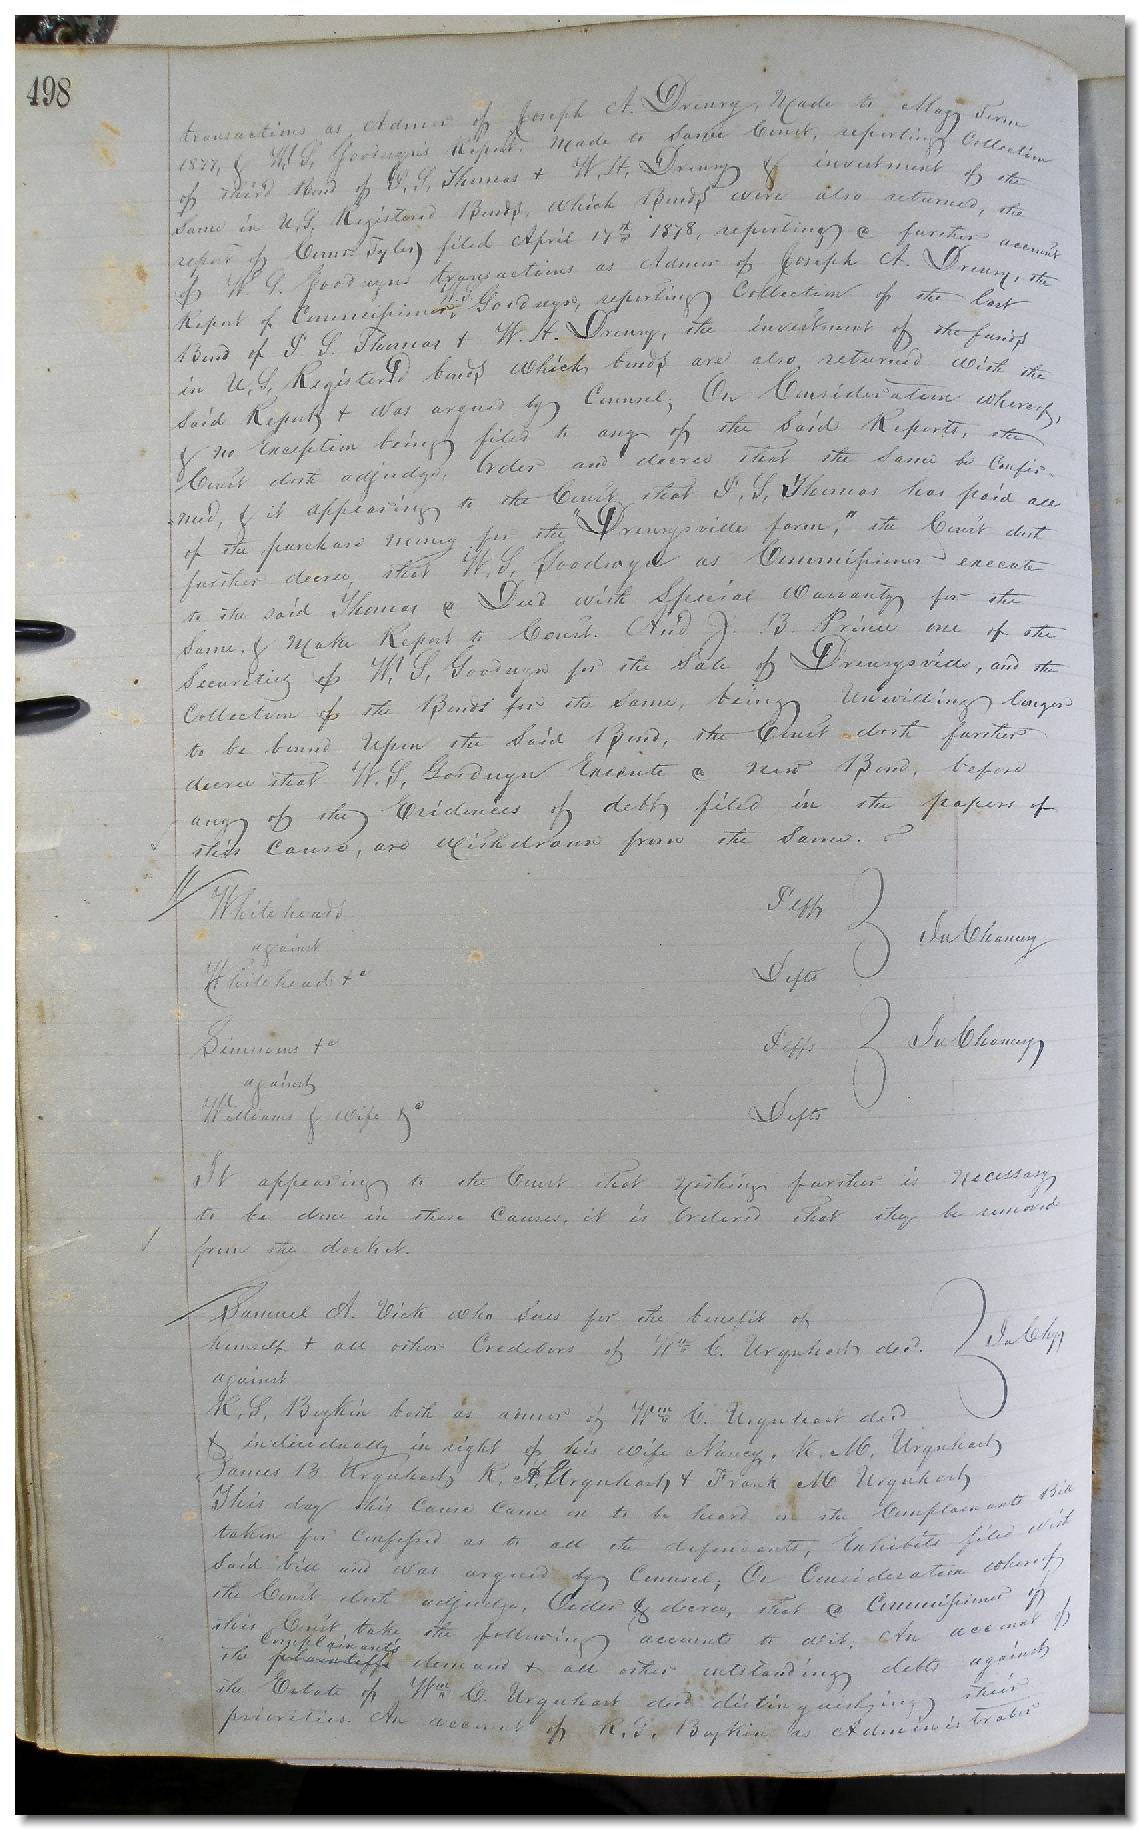 498
transactions as Admor of Joseph A. Drewry, Made to May Term
1877, & W. S. Goodwyn's Report. Made to Same Court, reporting Collection
of third Bond of P. S. Thomas + W. H. Drewry & investment of the
Same in U. S. Registered Bonds, which Bonds were also returned, the
report of Comr Tyler filed April 17th 1878, reporting a further account
of W. S. Goodwyns transactions as Admor of Joseph A. Drewry, the
Report of Commissioner W. S. Goodwyn, reporting Collection of the last
Bond of P. S. Thomas + W. H. Drewry, the investment of the funds
in U. S. Registered bonds which bonds are also returned with the
Said Report + was argued by Counsel; On Consideration whereof,
& no Exception being filed to any of the Said Reports, the
Court doth adjudge, Order and decree that the Same be Confir-
med, & it appearing to the Court that P. S. Thomas has paid all
of the purchase money for the "Drewrysville farm," the Court doth
further decree, that W. S. Goodwyn as Commissioner execute
to the said Thomas a Deed with Special Warranty for the
Same, & Make Report to Court. And J. B. Prince one of the
Securities of W. S. Goodwyn for the Sale of Drewrysville, and the
Collection of the Bonds for the Same, being Unwilling longer
to be bound Upon the Said Bond, the Court doth further
decree that W. S. Goodwyn Execute a new Bond, before
any of the Evidences of debt filed in the papers of
this Cause, are Withdrawn from the Same.
Whiteheads Plffs
against In Chancery
Whitehead +c Defts
Simmons +c Plffs In Chancery
against
Williams & wife &c Defts
It appearing to the Court that nothing further is necessary
to be done in these Causes, it is Ordered that they be removed
from the docket.
Samuel A. Vick who Sues for the benefit of
himself + all other Creditors of Wm C. Urquhart decd. In Chy
against
R. S. Boykin both as admor of Wm C. Urquhart decd
& individually in right of his wife Nancy, K. M. Urquhart
James B. Urquhart, R. A. Urquhart & Frank M Urquhart
This day this Cause came on to be heard on the Complainants Bill
taken for Confessed as to all the defendants, Exhibits filed with
Said bill and was argued by Counsel; On Consideration whereof
the Court doth adjudge, Order & decree, that a Commissioner of
this Court take the following accounts to wit. An account of
the plaintiffs Complainants demand + all other outstanding debts against
the Estate of Wm C. Urquhart decd distinguishing their
priorities. An account of R. S. Boykin as Administrator